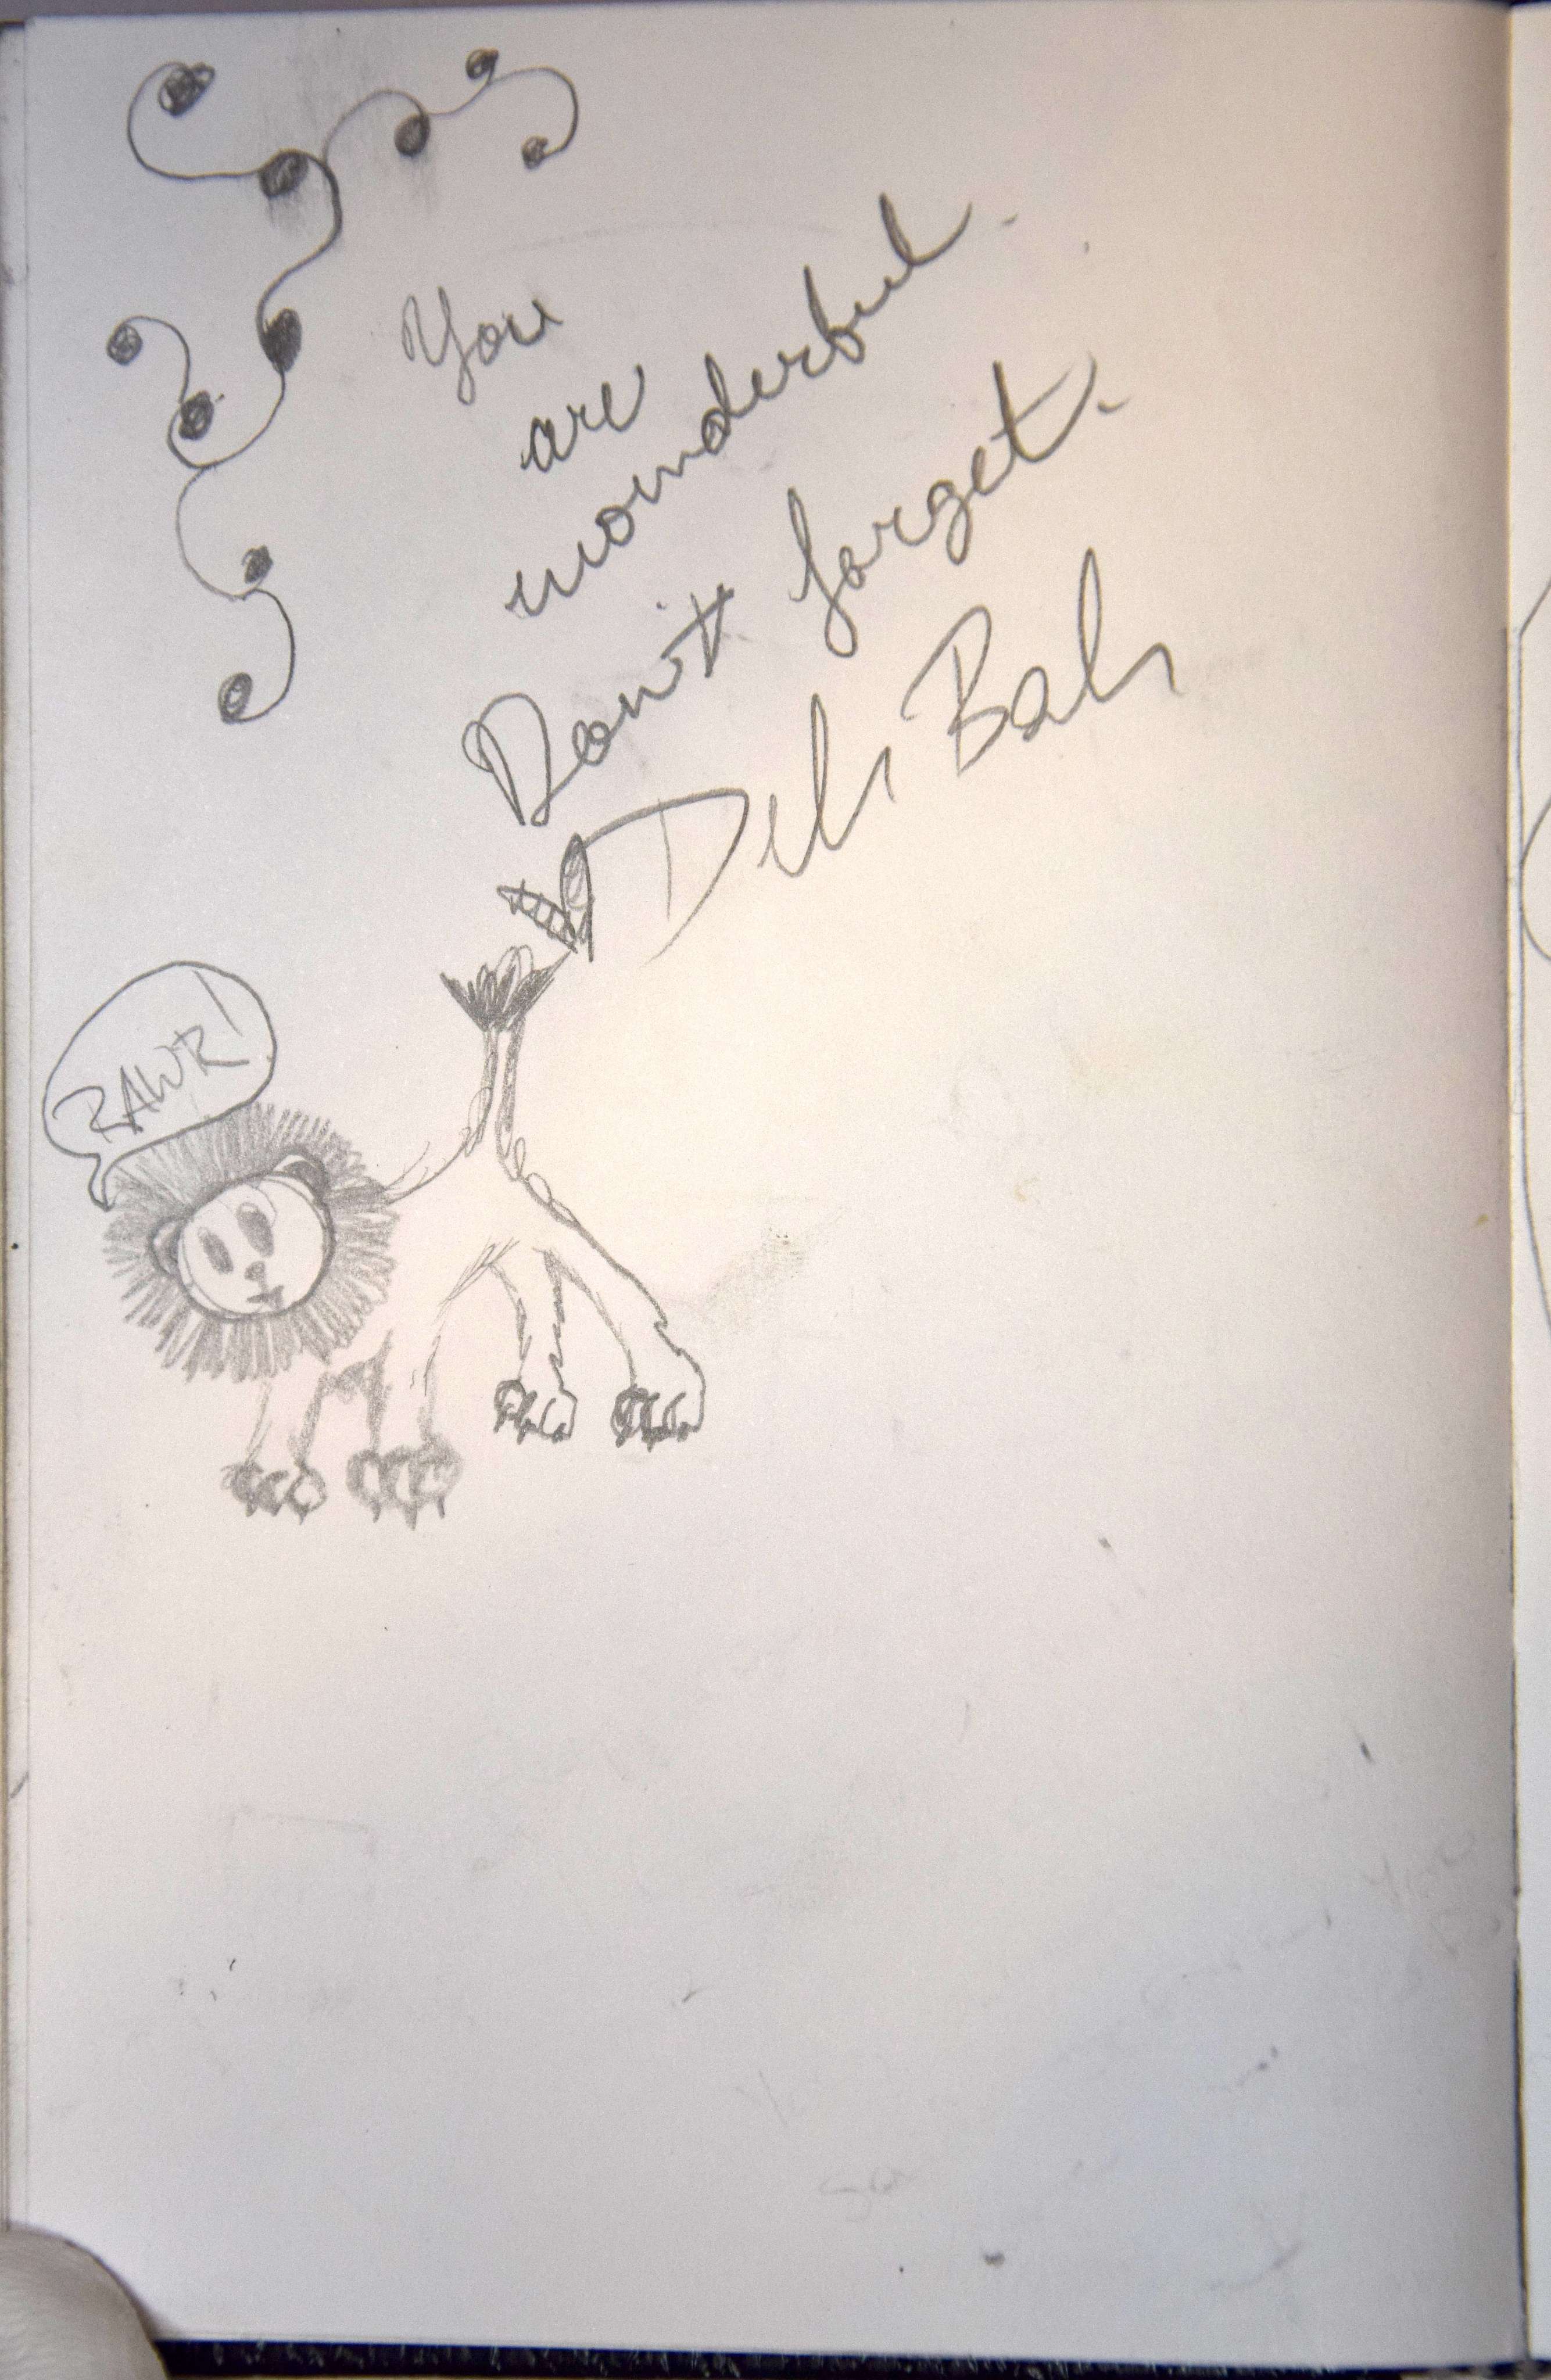 You
are
wonderful.
Don't forget.
RAWR!